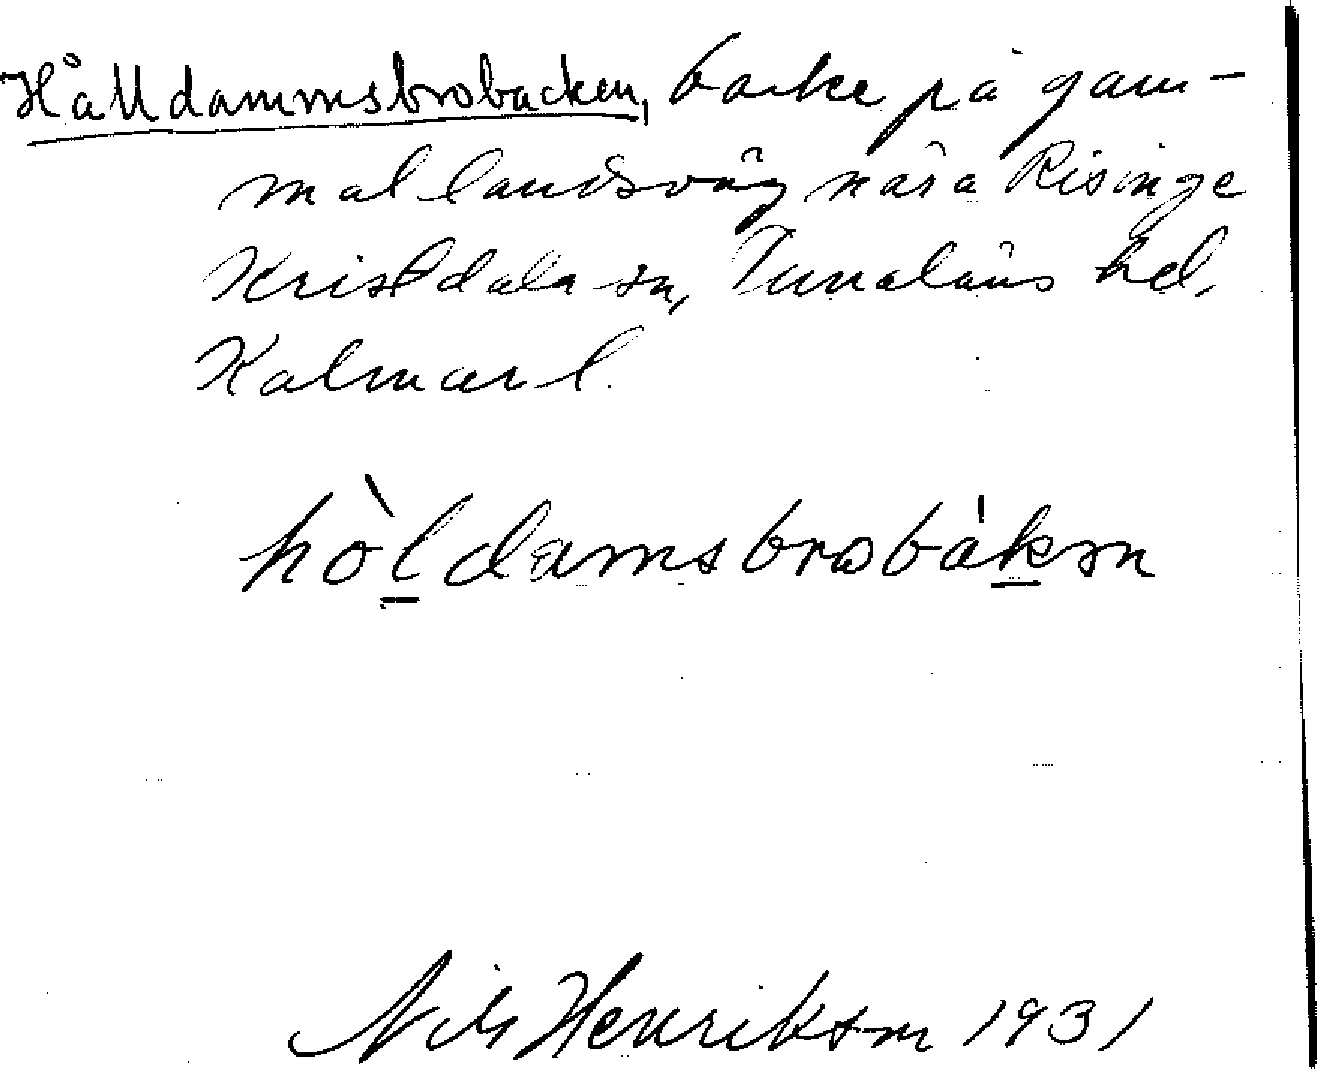 Hålldammsbrobacken, backe på gam-
mal landsväg nära Risinge
Kristdala sn, Tunaläns hd,
Kalmar l.
hòldamsbrobákən
Nils Henrikson 1931